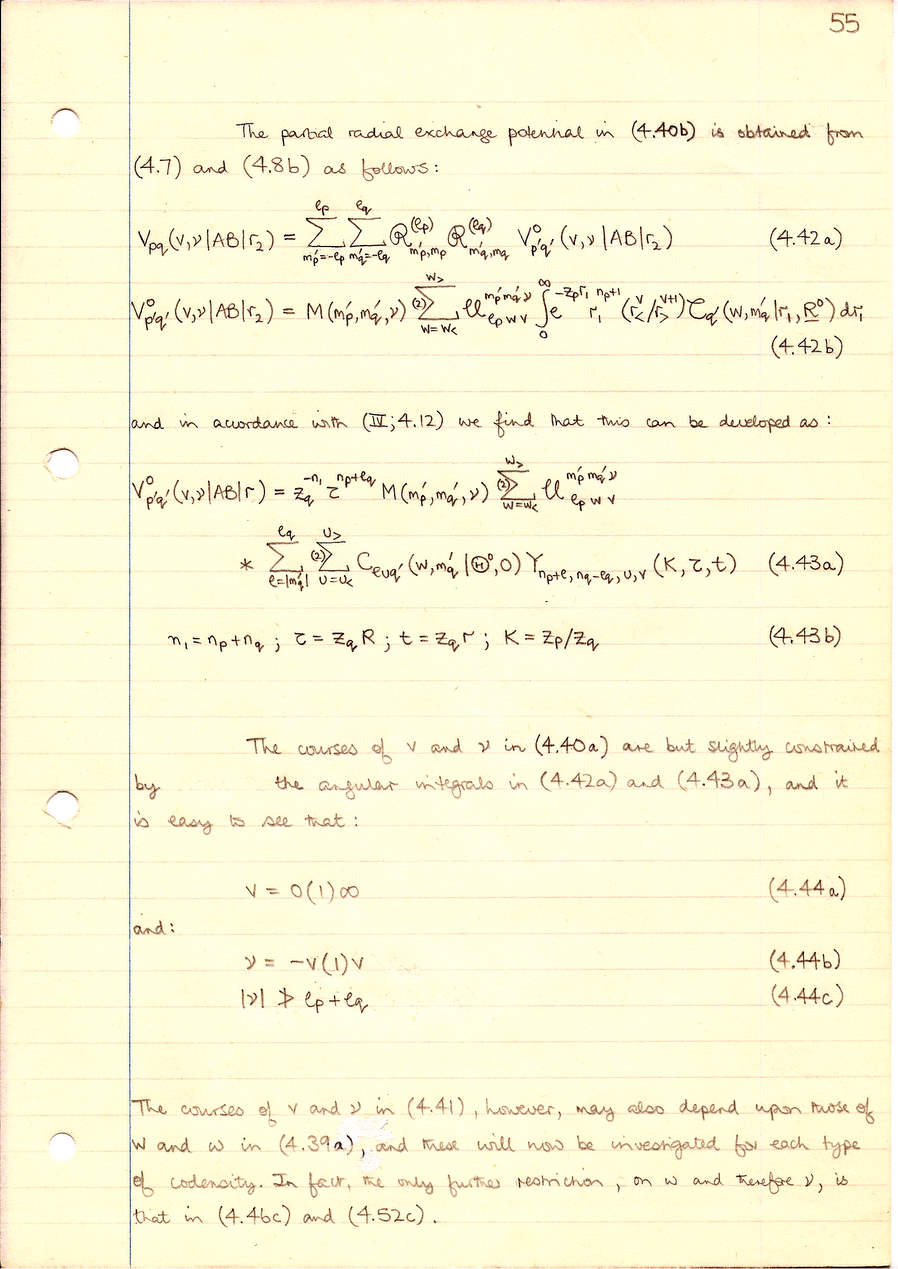 55
The partial radial exchange potential in (4.40b) is obtained from
(4.7) and (4.8b) as follows:
V_{pq}(v,ν|AB|r₂) = Σ_{m′_p=-ℓ_p}^{ℓ_p} Σ_{m′_q=-ℓ_q}^{ℓ_q} ℛ^{(ℓ_p)}_{m′_p,m_p} ℛ^{(ℓ_q)}_{m′_q,m_q} V⁰_{p′q′}(v,ν|AB|r₂) (4.42a)
V⁰_{p′q′}(v,ν|AB|r₂) = M(m′_p,m′_q,ν) Σ^{(2)}_{w=w_<}^{w_>} 𝒰^{m′_p m′_q ν}_{ℓ_p w v} ∫_0^∞ e^{-z_p r₁} r₁^{n_p+1} (r_<^v/r_>^{v+1}) 𝒞_{q′}(w,m′_q|r₁,R⁰) dr₁
(4.42b)
and in accordance with (IV;4.12) we find that this can be developed as :
V⁰_{p′q′}(v,ν|AB|r) = z_q^{-n₁} τ^{n_p+ℓ_q} M(m′_p,m′_q,ν) Σ^{(2)}_{w=w_<}^{w_>} 𝒰^{m′_p m′_q ν}_{ℓ_p w v}
* Σ_{ℓ=|m′_q|}^{ℓ_q} Σ^{(2)}_{u=u_<}^{u_>} C_{ℓuq′}(w,m′_q|Θ⁰,0) Y_{n_p+ℓ,n_q-ℓ_q,u,v}(K,τ,t) (4.43a)
n₁ = n_p+n_q ; τ = z_q R ; t = z_q r ; K = z_p/z_q (4.43b)
The courses of v and ν in (4.40a) are but slightly constrained
by the angular integrals in (4.42a) and (4.43a), and it
is easy to see that :
v = 0(1)∞ (4.44a)
and:
ν = -v(1)v (4.44b)
|ν| ≯ ℓ_p+ℓ_q (4.44c)
The courses of v and ν in (4.41), however, may also depend upon those of
W and ω in (4.39a), and these will now be investigated for each type
of codensity. In fact, the only further restriction, on ω and therefore ν, is
that in (4.46c) and (4.52c).